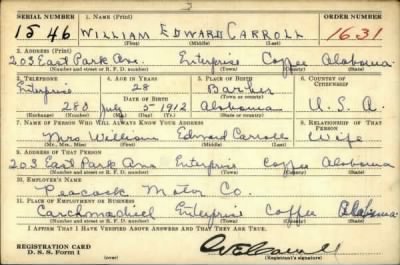 SERIAL NUMBER 1. NAME (Print) ORDER NUMBER
1546 WILLIAM EDWARD CARROLL 1631
(First) (Middle) (Last)
2. ADDRESS (Print)
203 East Park Ave. Enterprise Coffee Alabama
(Number and street or R. F. D. number) (Town) (County) (State)
3. TELEPHONE 4. AGE IN YEARS 5. PLACE OF BIRTH 6. COUNTRY OF CITIZENSHIP
Enterprise 28
DATE OF BIRTH
280 July 5 1912 Alabama U. S. A.
(Exchange) (Number) (Mo.) (Day) (Yr.) (State or country)
7. NAME OF PERSON WHO WILL ALWAYS KNOW YOUR ADDRESS 8. RELATIONSHIP OF THAT PERSON
Mrs. William Edward Carroll Wife
(Mr., Mrs., Miss) (First) (Middle) (Last)
9. ADDRESS OF THAT PERSON
203 East Park Ave Enterprise Coffee Alabama
(Number and street or R. F. D. number) (Town) (County) (State)
10. EMPLOYER'S NAME
Peacock Motor Co.
11. PLACE OF EMPLOYMENT OR BUSINESS
Enterprise Coffee Alabama
(Number and street or R. F. D. number) (Town) (County) (State)
I AFFIRM THAT I HAVE VERIFIED ABOVE ANSWERS AND THAT THEY ARE TRUE.
REGISTRATION CARD
D. S. S. Form 1
(Registrant's signature)